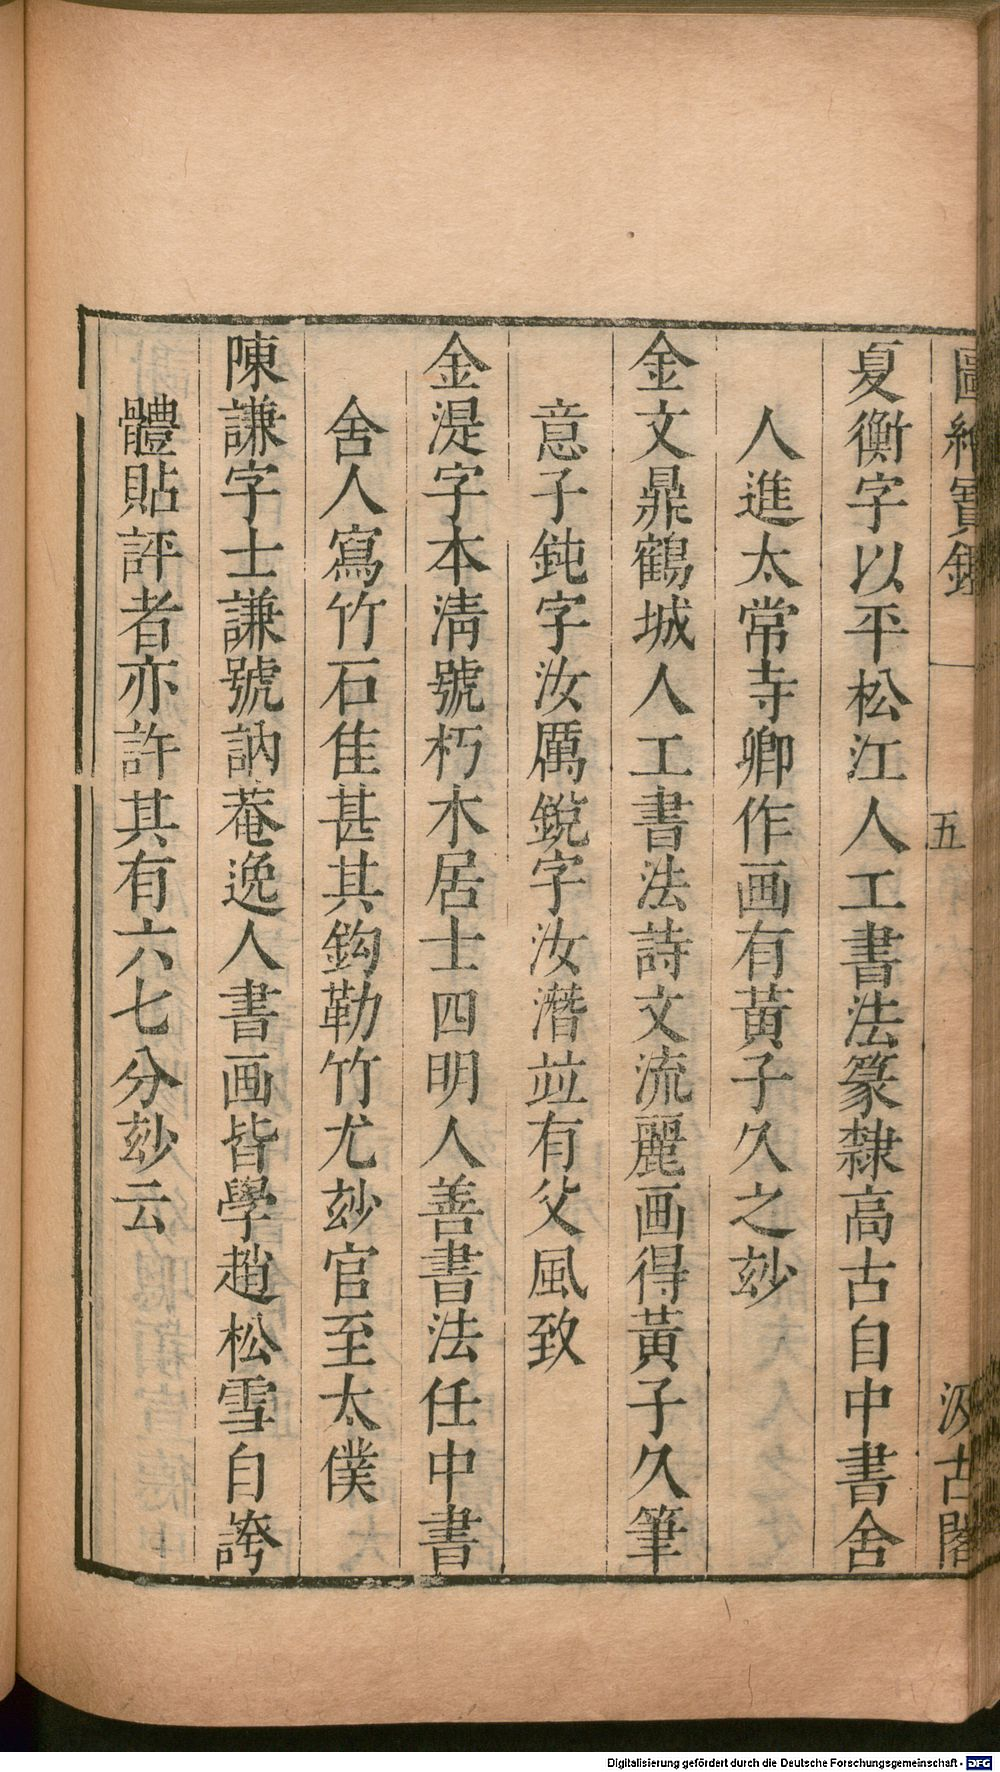 圖繪寶鑑 五 汲古閣
夏衡字以平松江人工書法篆隸高古自中書舍
人進太常寺卿作画有黃子久之玅
金文鼎鶴城人工書法詩文流麗画得黃子久筆
意子鈍字汝厲銳字汝潛竝有父風致
金湜字本淸號朽木居士四明人善書法任中書
舍人寫竹石佳甚其鈎勒竹尤玅官至太僕
陳謙字士謙號訥菴逸人書画皆學趙松雪自誇
體貼評者亦許其有六七分玅云
Digitalisierung gefördert durch die Deutsche Forschungsgemeinschaft - DFG